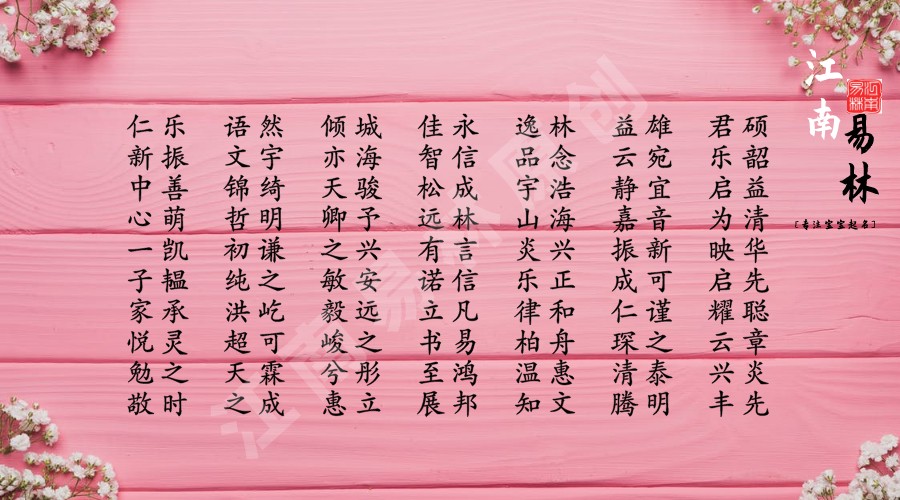 仁乐 语然 倾城 佳永 逸林 益雄 君硕
新振 文宇 亦海 智信 品念 云宛 乐韶
中善 锦绮 天骏 松成 宇浩 静宜 启益
心萌 哲明 卿予 远林 山海 嘉音 为清
一凯 初谦 之兴 有言 炎兴 振新 映华
子韫 纯之 敏安 诺信 乐正 成可 启先
家承 洪屹 毅远 立凡 律和 仁谨 耀聪
悦灵 超可 峻之 书易 柏舟 琛之 云章
勉之 天霖 兮彤 至鸿 温惠 清泰 兴炎
敬时 之成 惠立 展邦 知文 腾明 丰先
江南
易林
江南易林
[专注宝宝起名]
江南易林原创